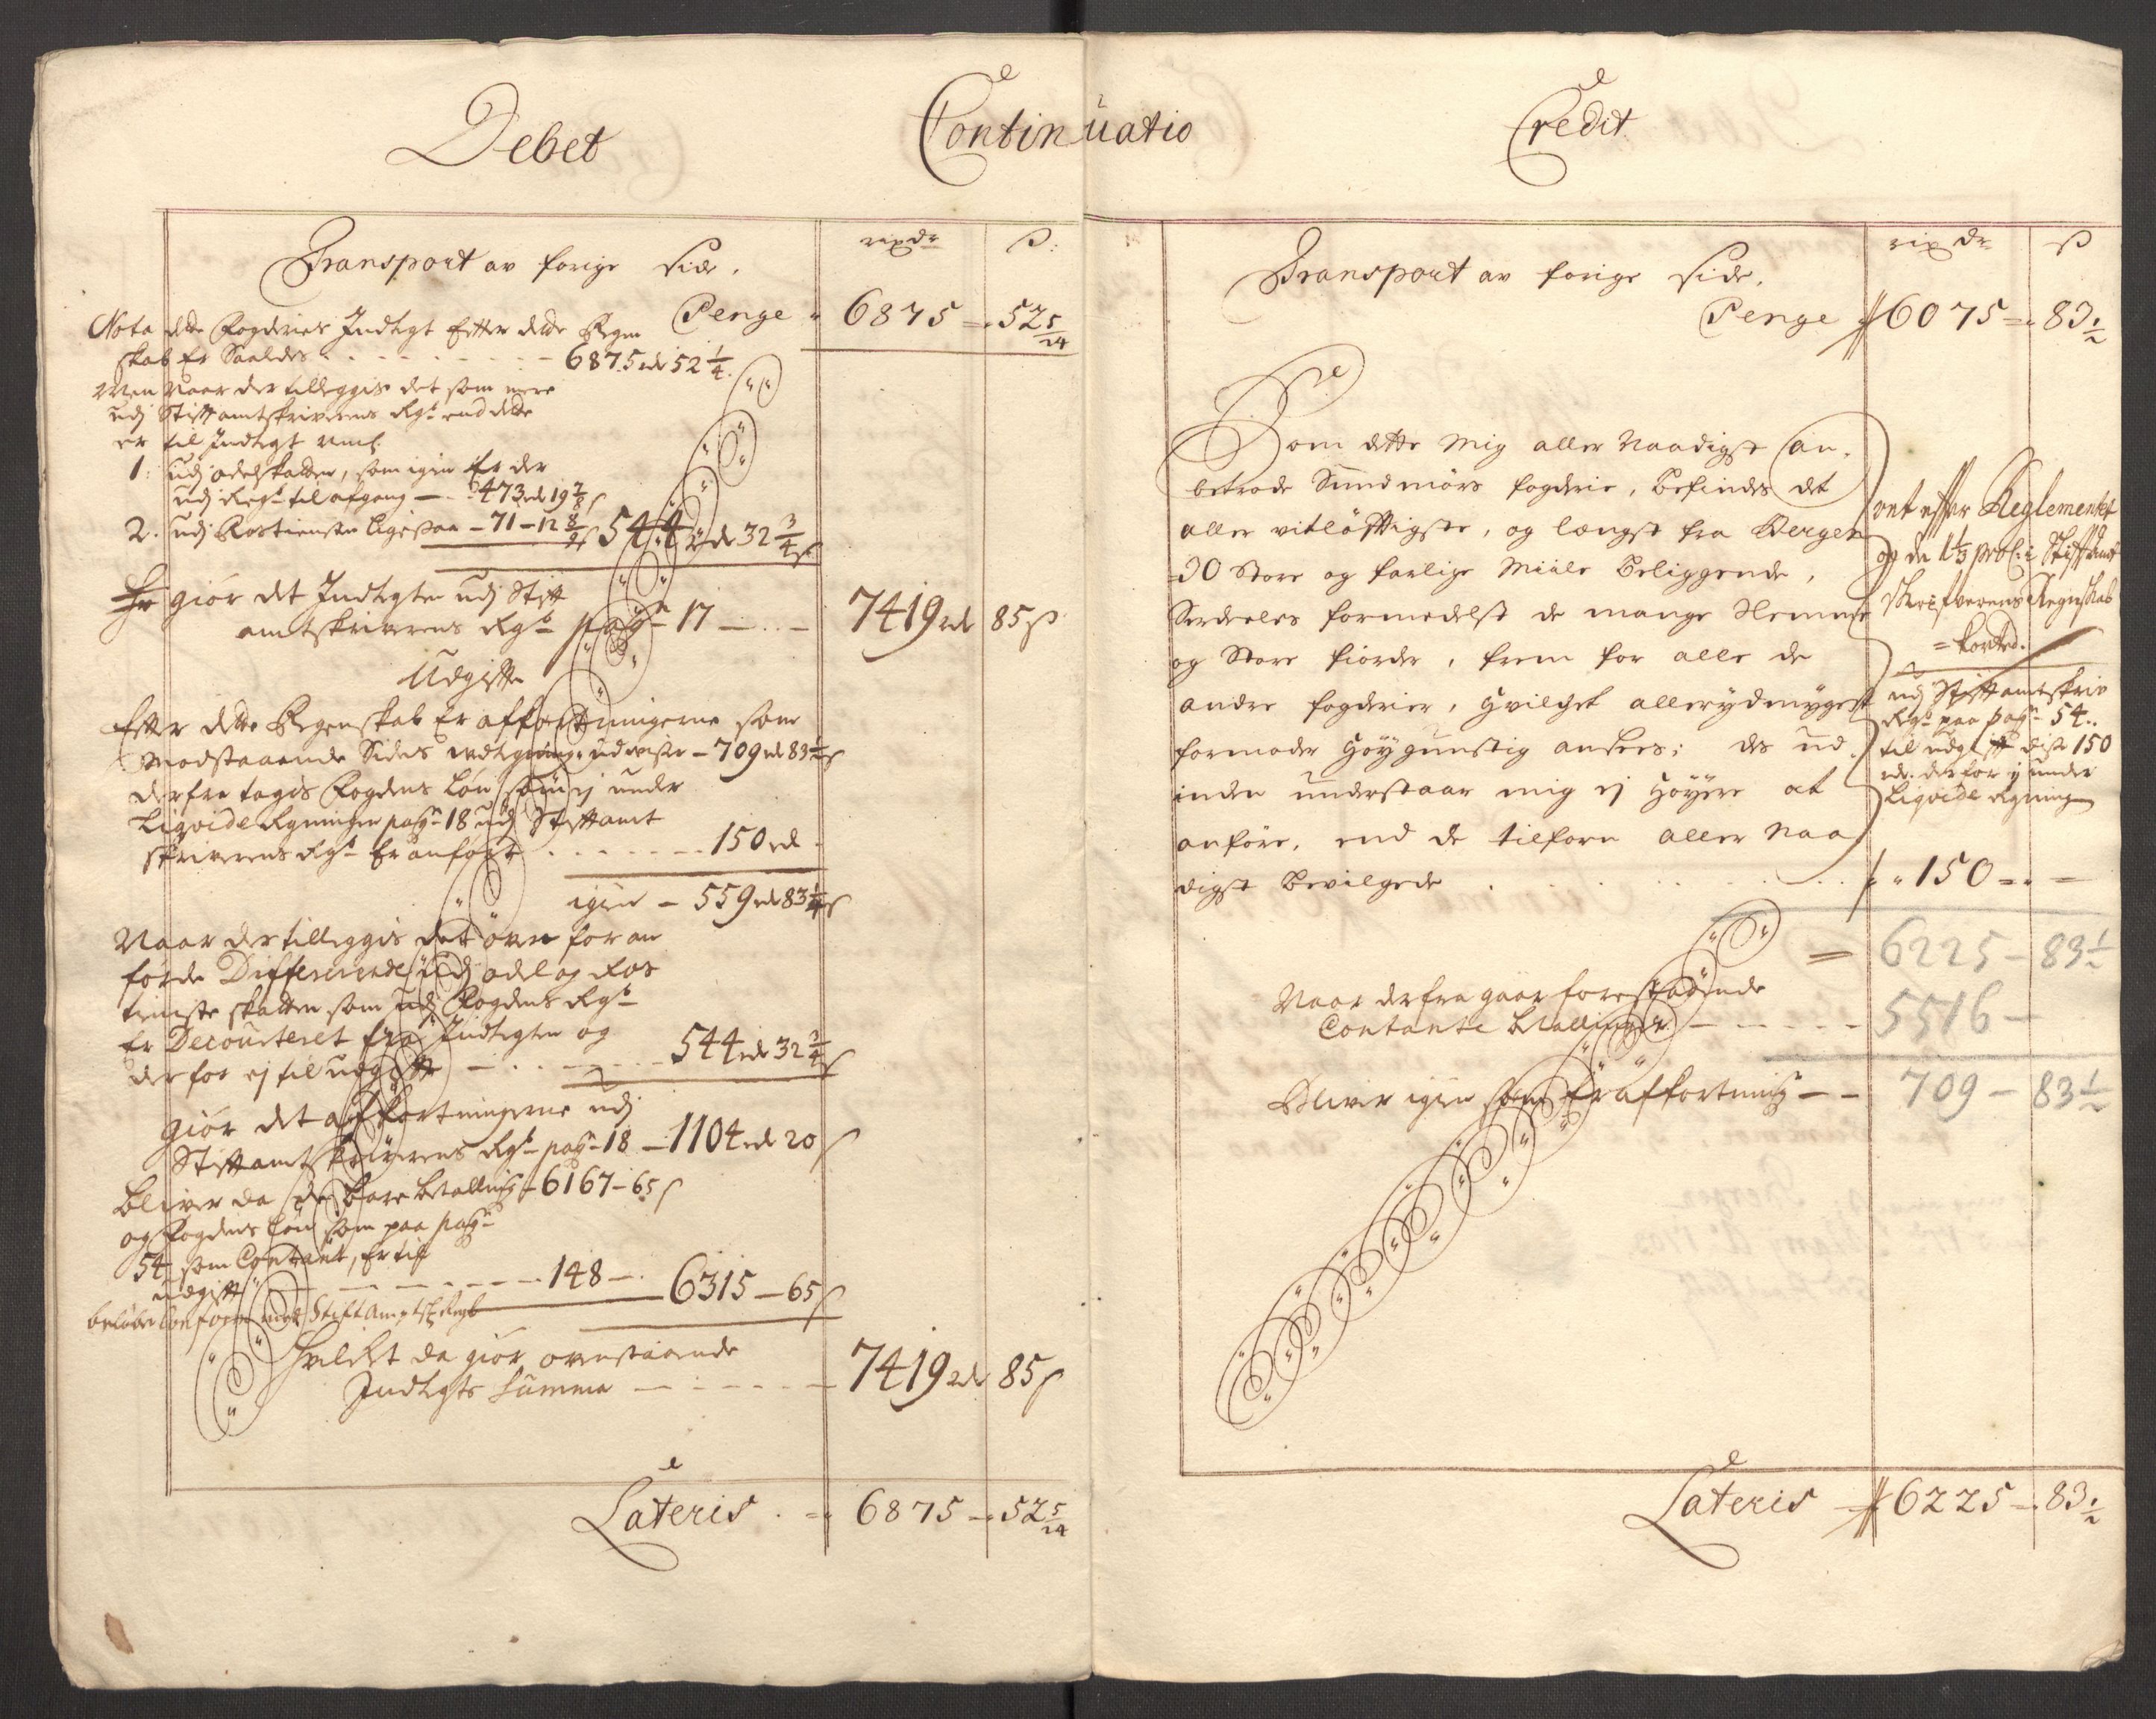 Debet
Continuatio
Credit
rixdr
ß:
Transport av forige side.
Penge 6875 - 52 5/24
Nota dette Fogderies Indtegt Efter dette Regen
skab Er Saaledes - - - 6875 rdr 52 1/4
Men Naar der tilleggis det som mere
udj Stiftamtskriverens Rgs. end dette
er til Indtegt nml.
1: udj odelskatten, som igien Er der
udj Regs. til afgang - 473 rdr 19 7/8 ß
2. udj Rostiensten ligesaa - 71 - 12 8/9 ß 544 rdr 32 3/4 ß
giør det Indtegten udj Stift
amtskriverens Rgs. pag. 17 - 7419 rdr 85 ß
Udgifte
Efter dette Regenskab Er affkortningerne som
Modstaaende Sides udviser - 709 rdr 83 1/2 ß
derfra tagis Fogdens Løn som ej under
Liqvide Regningen pag. 18 udj Stiftamt
skriverens Rgs. Er anført - - - 150 rdr
igien - 559 rdr 83 1/4 ß
Naar der tilleggis det oven for an
førde Differerende udj odel og Ros
tieniste skatten som udj Fogdens Rgs.
Er Decourteret fra Indtegten og
derfor ej til udgifft - - - 544 rdr 32 3/4 ß
giør det affkortningerne udj
Stiftamtskriverens Rgs. pag. 18 - 1104 rdr 20 ß
bliver da de bare betalling - 6167 - 65 ß
og Fogdens Løn som paa pag.
54 som Contant, Er til
udgift - - - 148 - 6315 - 65 ß
beløber Conform med StiftAmptsk. Regs.
Hvilket da giør ovenstaaende
Indtegts Summa - - - 7419 rdr 85 ß
Lateris - 6875 - 52 5/24
rixdr
ß
Transport av forige side.
Penge 6075 - 83 1/2
Som dette Mig aller Naadigst an-
betrode Sundmørs fogderie, befindes det
aller vitløfftigste, og længst fra Bergen
30 Store og farlige Miile beliggende,
Serdeeles formedelst de mange Slemme
og Store fiorder, frem for alle de
andre fogderier, Hvilchet allerydmygest
formoder Høygunstig ansees; des ud-
inden understaar mig ej Høyere at
anføre, end de tilforn aller Naa
digst bevilgede - - - 150 - -
ret effter Reglementet
og de 1 1/3 proC: i Stifftamt
Skrifverens Regnskab
= korted.
udj Stifftamtskriv
Rgs. paa pag. 54..
til udgifft disse 150
rdr. derfor ej under
Liqvide Regningen
= 6225 - 83 1/2
Naar derfra gaar forestaaende
Contante betallinger - - - 5516 -
Bliver igien som Er affkortning - - 709 - 83 1/2
Lateris - 6225 - 83 1/2